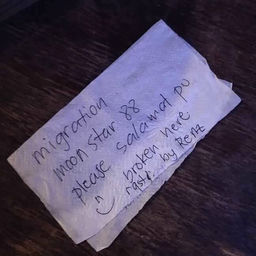 migration
moon star 88
please salamat po
broken here
rasta by Renz